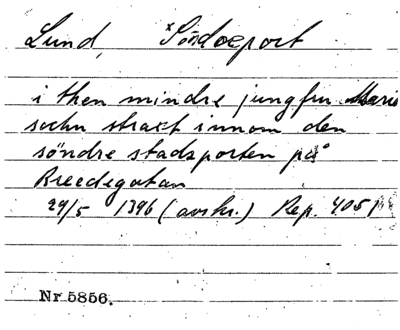 Lund, ˣSöndreport
i then mindre jungfru Marie
sochn straxt innom den
söndre stadsporten på
Breedegatan
29/5 1396 (avskr.) Rep. 4051
Nr 5856.